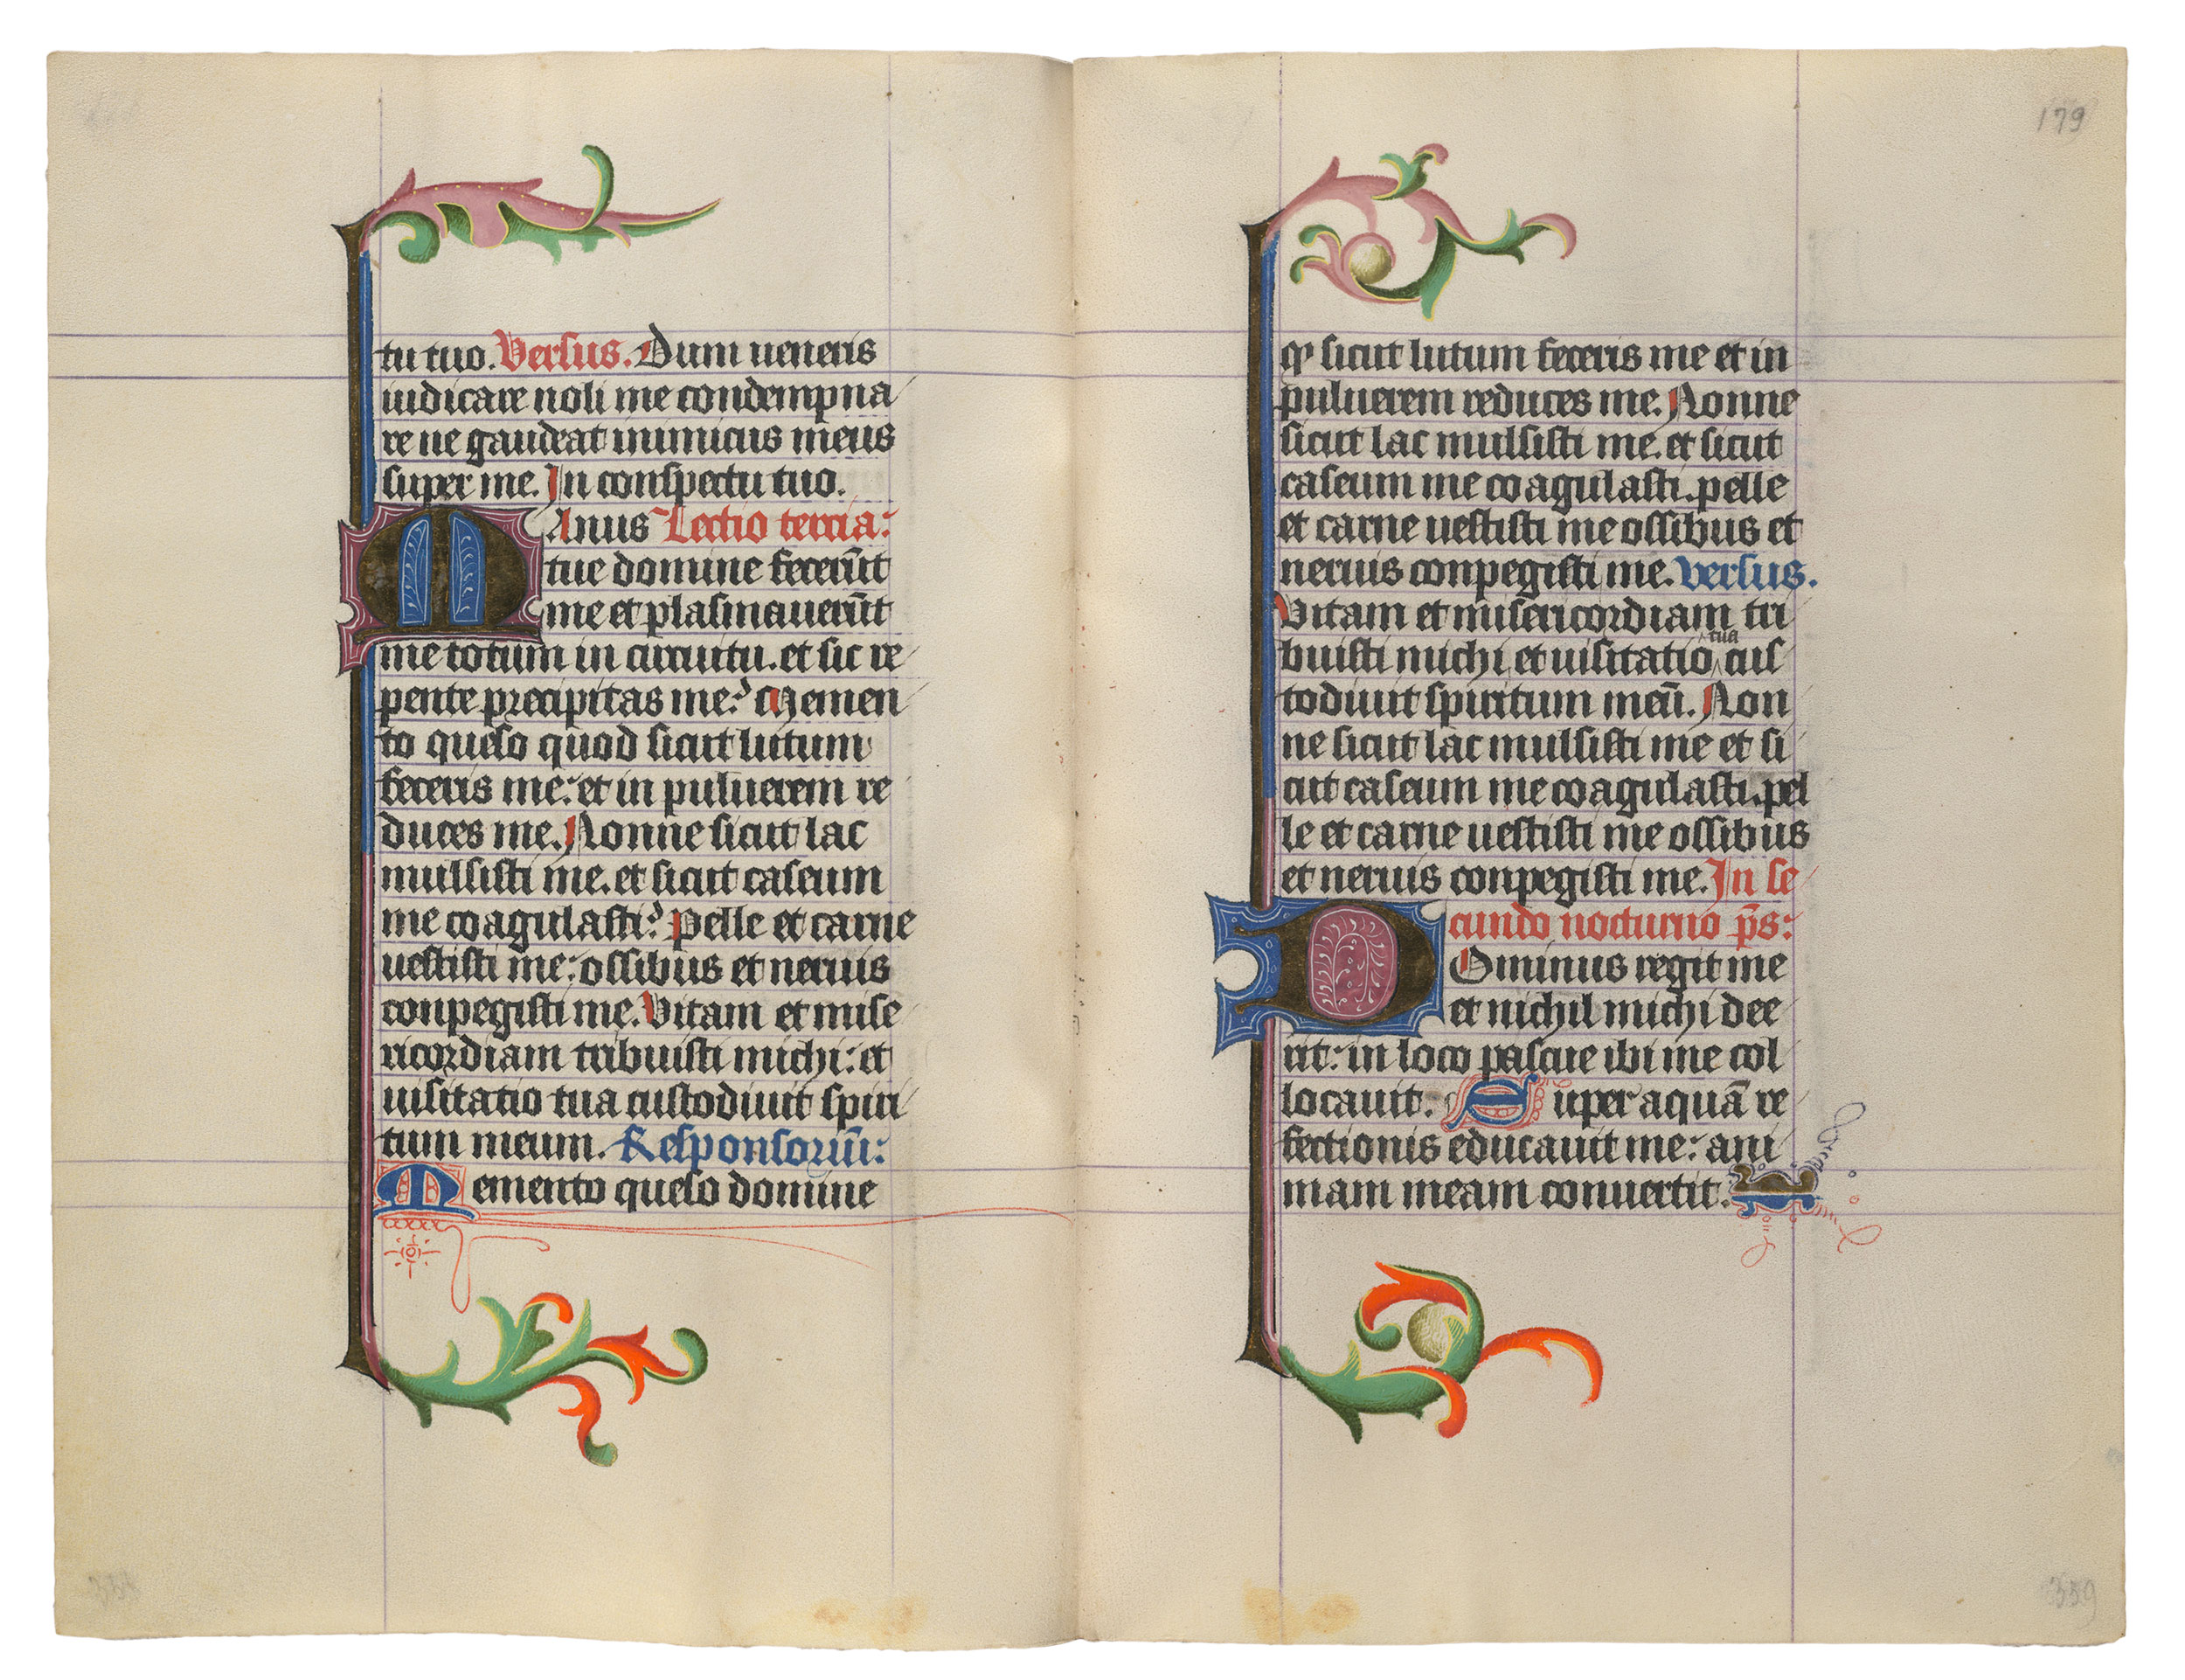 tu tuo. Versus. Dum ueneris
iudicare noli me condempna
re ne gaudeat inimicus meus
super me. In conspectu tuo.
MAnus Lectio tercia:
tue domine fecerūt
me et plasmauerūt
me totum in circuitu. et sic re
pente precipitas me? Memen
to queso quod sicut lutum
feceris me: et in puluerem re
duces me. Nonne sicut lac
mulsisti me. et sicut caseum
me coagulasti? Pelle et carne
uestisti me: ossibus et neruis
conpegisti me. Vitam et mise
ricordiam tribuisti michi: et
uisitatio tua custodiuit spiri
tum meum. Responsoriū:
Memento queso domine
179
qꝫ sicut lutum feceris me et in
puluerem reduces me. Nonne
sicut lac mulsisti me. et sicut
caseum me coagulasti. pelle
et carne uestisti me ossibus et
neruis conpegisti me. Versus.
Vitam et misericordiam tri
buisti michi et uisitatio tua cus
todiuit spiritum meū. Non
ne sicut lac mulsisti me et si
cut caseum me coagulasti. pel
le et carne uestisti me ossibus
et neruis conpegisti me. In se
cundo nocturno p̄s:
DOminus regit me
et nichil michi dee
rit: in loco pascue ibi me col
locauit. Super aquā re
fectionis educauit me: ani
mam meam conuertit.
359